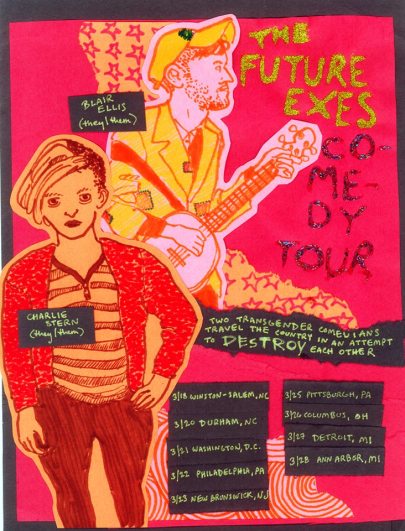 THE
FUTURE
EXES
CO-
ME-
DY
TOUR
BLAIR
ELLIS
(they/them)
CHARLIE
STERN
(they/them)
TWO TRANSGENDER COMEDIANS
TRAVEL THE COUNTRY IN AN ATTEMPT
TO DESTROY EACH OTHER
3/18 WINSTON-SALEM, NC
3/20 DURHAM, NC
3/21 WASHINGTON, D.C.
3/22 PHILADELPHIA, PA
3/23 NEW BRUNSWICK, NJ
3/25 PITTSBURGH, PA
3/26 COLUMBUS, OH
3/27 DETROIT, MI
3/28 ANN ARBOR, MI